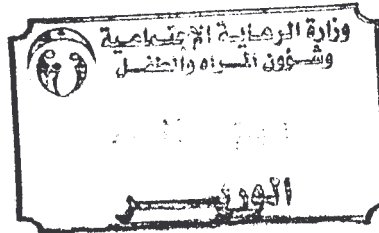 وزارة الرعاية الإجتماعية
وشؤون المرأه والطفل
الوزيـــر